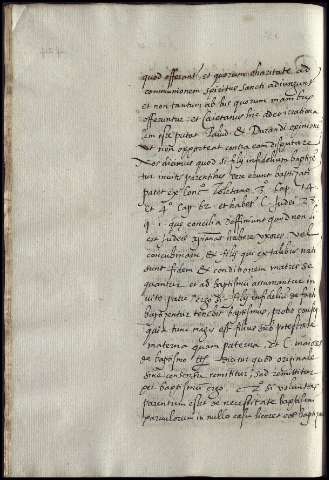 quod offerant, et quorum charitate ad
communionem spiritus sancti adiungunt
et non tantum ab his quorum manibus
offeruntur: et Caietanus
in iste putat Palud & Durandi opinioni
non opportent contra eam disputare
Nos dicimus quod si filij infidelium baptizentur
invitis parentibus vere erunt baptizati
patet ex conc. Toletano 3 Cap. 14
et 4º Cap. 62 et habet C. Iudei 23
q. 1. que concilia diffiniunt quod non
est Iudeis xpianas habere uxores, vel
concubinam, & filij qui ex talibus nati
sunt fidem & conditionem matris se
quantur, et ad baptismum assumantur in
vito patre ergo si filij infidelium de facto
baptizentur tenebit baptismus, probo
quia tunc magis est filius sub potestate
materna quam paterna, et C. maiores
de baptismo dicitur quod originale
sine consensu remittitur, sed remittitur
per baptismum ergo. si voluntas
parentum esset de necessitate baptismi
parvulorum in nullo casu liceret eos baptizare